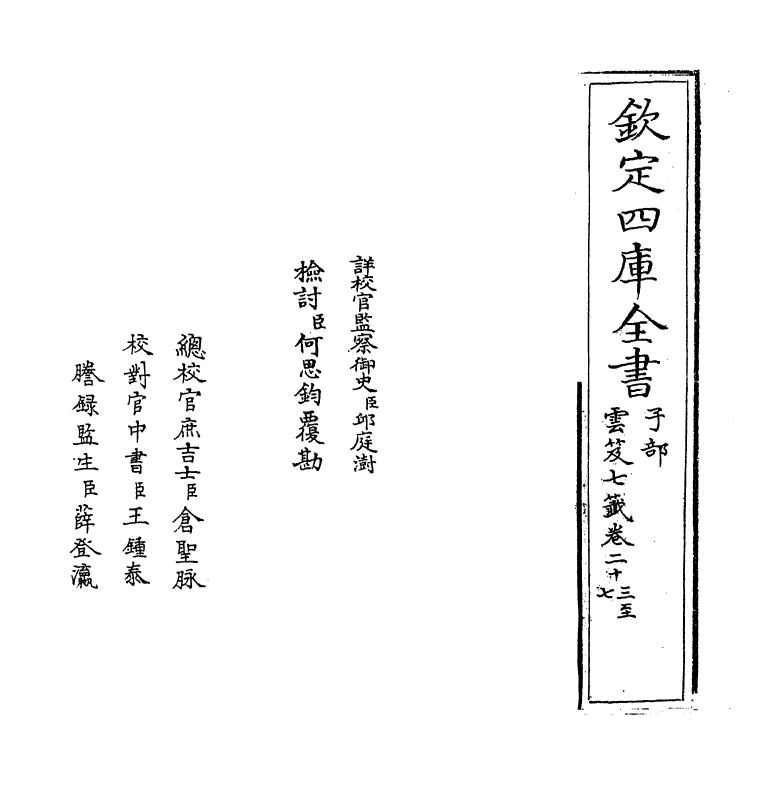 欽定四庫全書
子部
雲笈七籤卷二十三至
七
詳校官監察御史臣邱庭澍
檢討臣何思鈞覆勘
總校官庶吉士臣倉聖脉
校對官中書臣王鍾泰
謄録監生臣薛登瀛